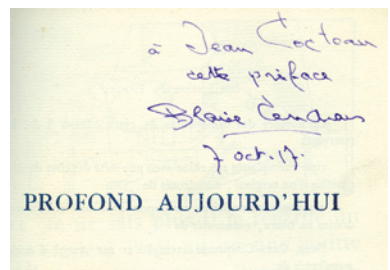 à Jean Cocteau
cette préface
Blaise Cendrars
7 oct. 17.
PROFOND AUJOURD'HUI